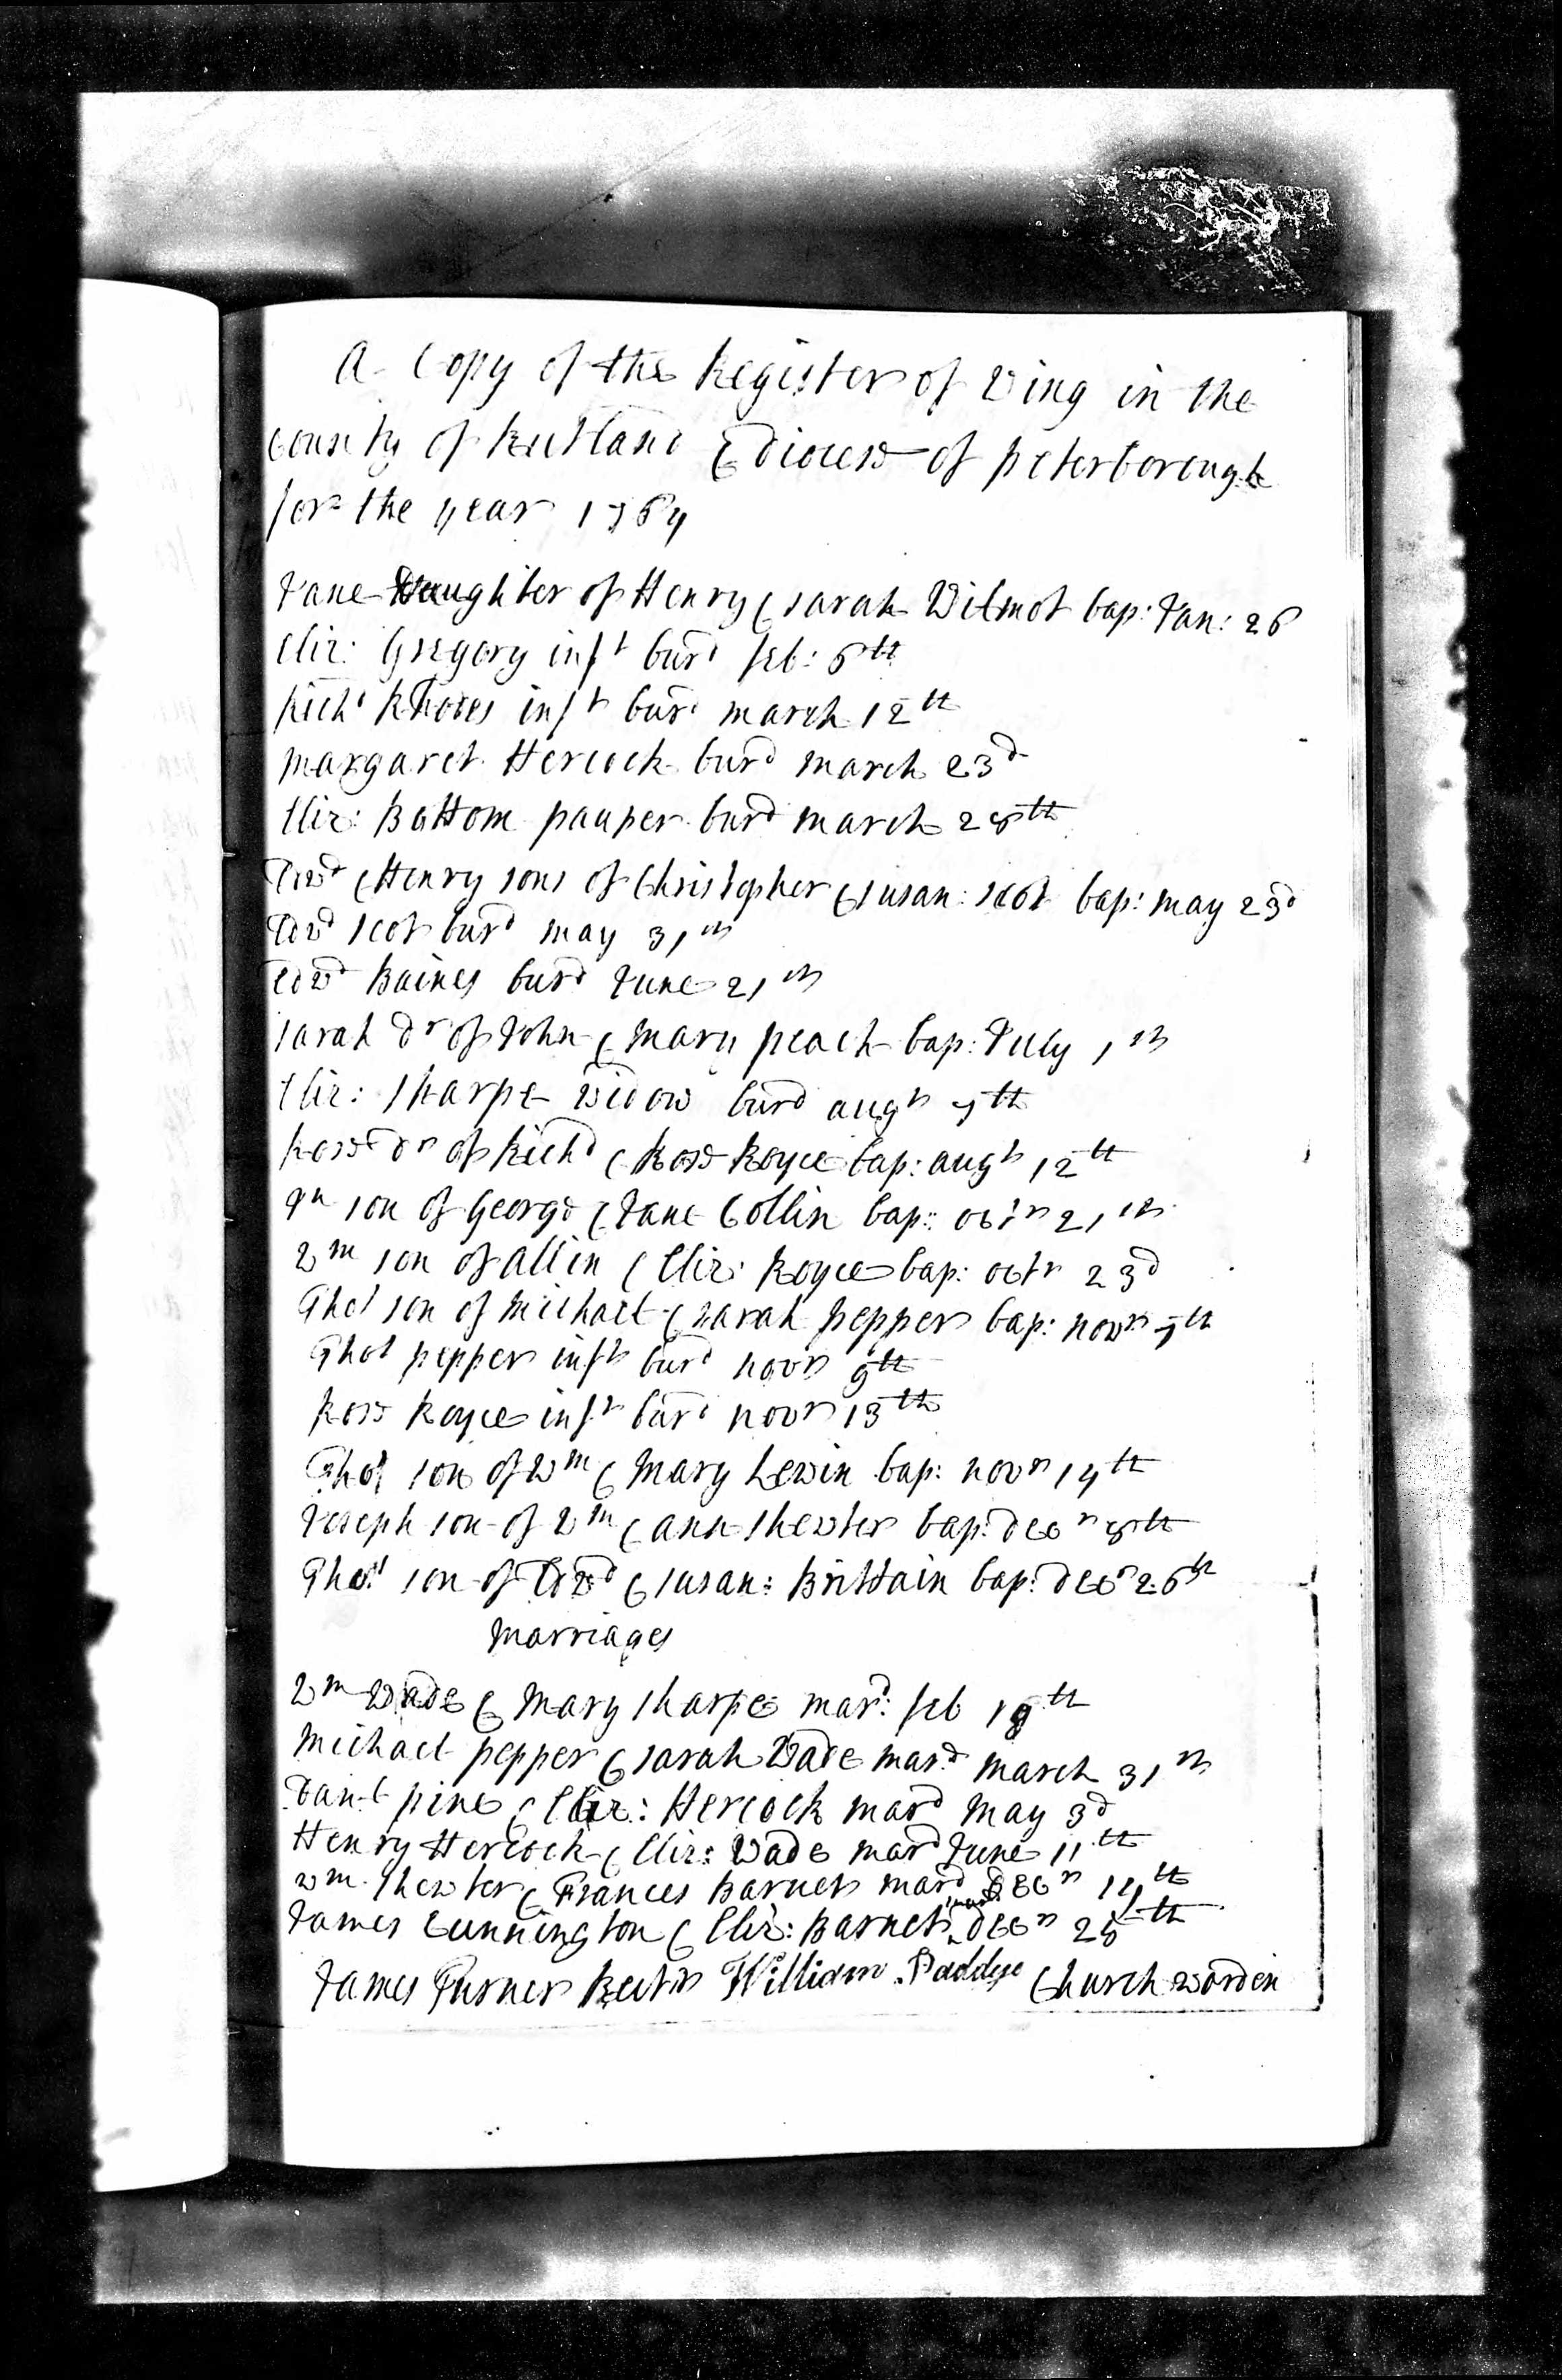 A Copy of the Register of Wing in the
County of Rutland & Diocess of peterborough
for the year 1764
Jane Daughter of Henry & Sarah Wilmot bap: Jan: 26
Eliz: Gregory inft burd feb: 6th
Richd Rhodes inft burd march 12th
margaret Hercock burd march 23d
Eliz: Bottom pauper burd march 28th
Edwd & Henry sons of Christopher & Susan: Scot bap: may 23d
Edwd Scot burd may 31st
Edwd Baines burd June 21st
Sarah Dr of John & Mary peach bap: July 1st
Eliz: Sharpe widow burd augst 7th
Rose Dr of Richd & Rose Royce bap: augst 12th
Jn son of George & Jane Collin bap: octr 21st
Wm son of Allin & Eliz: Royce bap: octr 23d
Thos son of Michael & Sarah pepper bap: novr 7th
Thos pepper inft burd novr 9th
Rose Royce inft burd novr 13th
Thos son of Wm & Mary Lewin bap: novr 14th
Joseph son of Wm & ann Thewter bap: decr 8th
Thos son of Edwd & Susan: Brittain bap: decr 26th
Marriages
Wm Wade & Mary Sharpe mard: feb 19th
Michael pepper & Sarah Wade mard march 31st
Danl pine & Eliz: Hercock mard May 3d
Henry Hercock & Eliz: Wade mard June 11th
Wm Thewter & Frances Barnet mard decr 14th
James Cunnington & Eliz: Barnet mard decr 25th
James Turner Rectr William Paddye Churchwarden